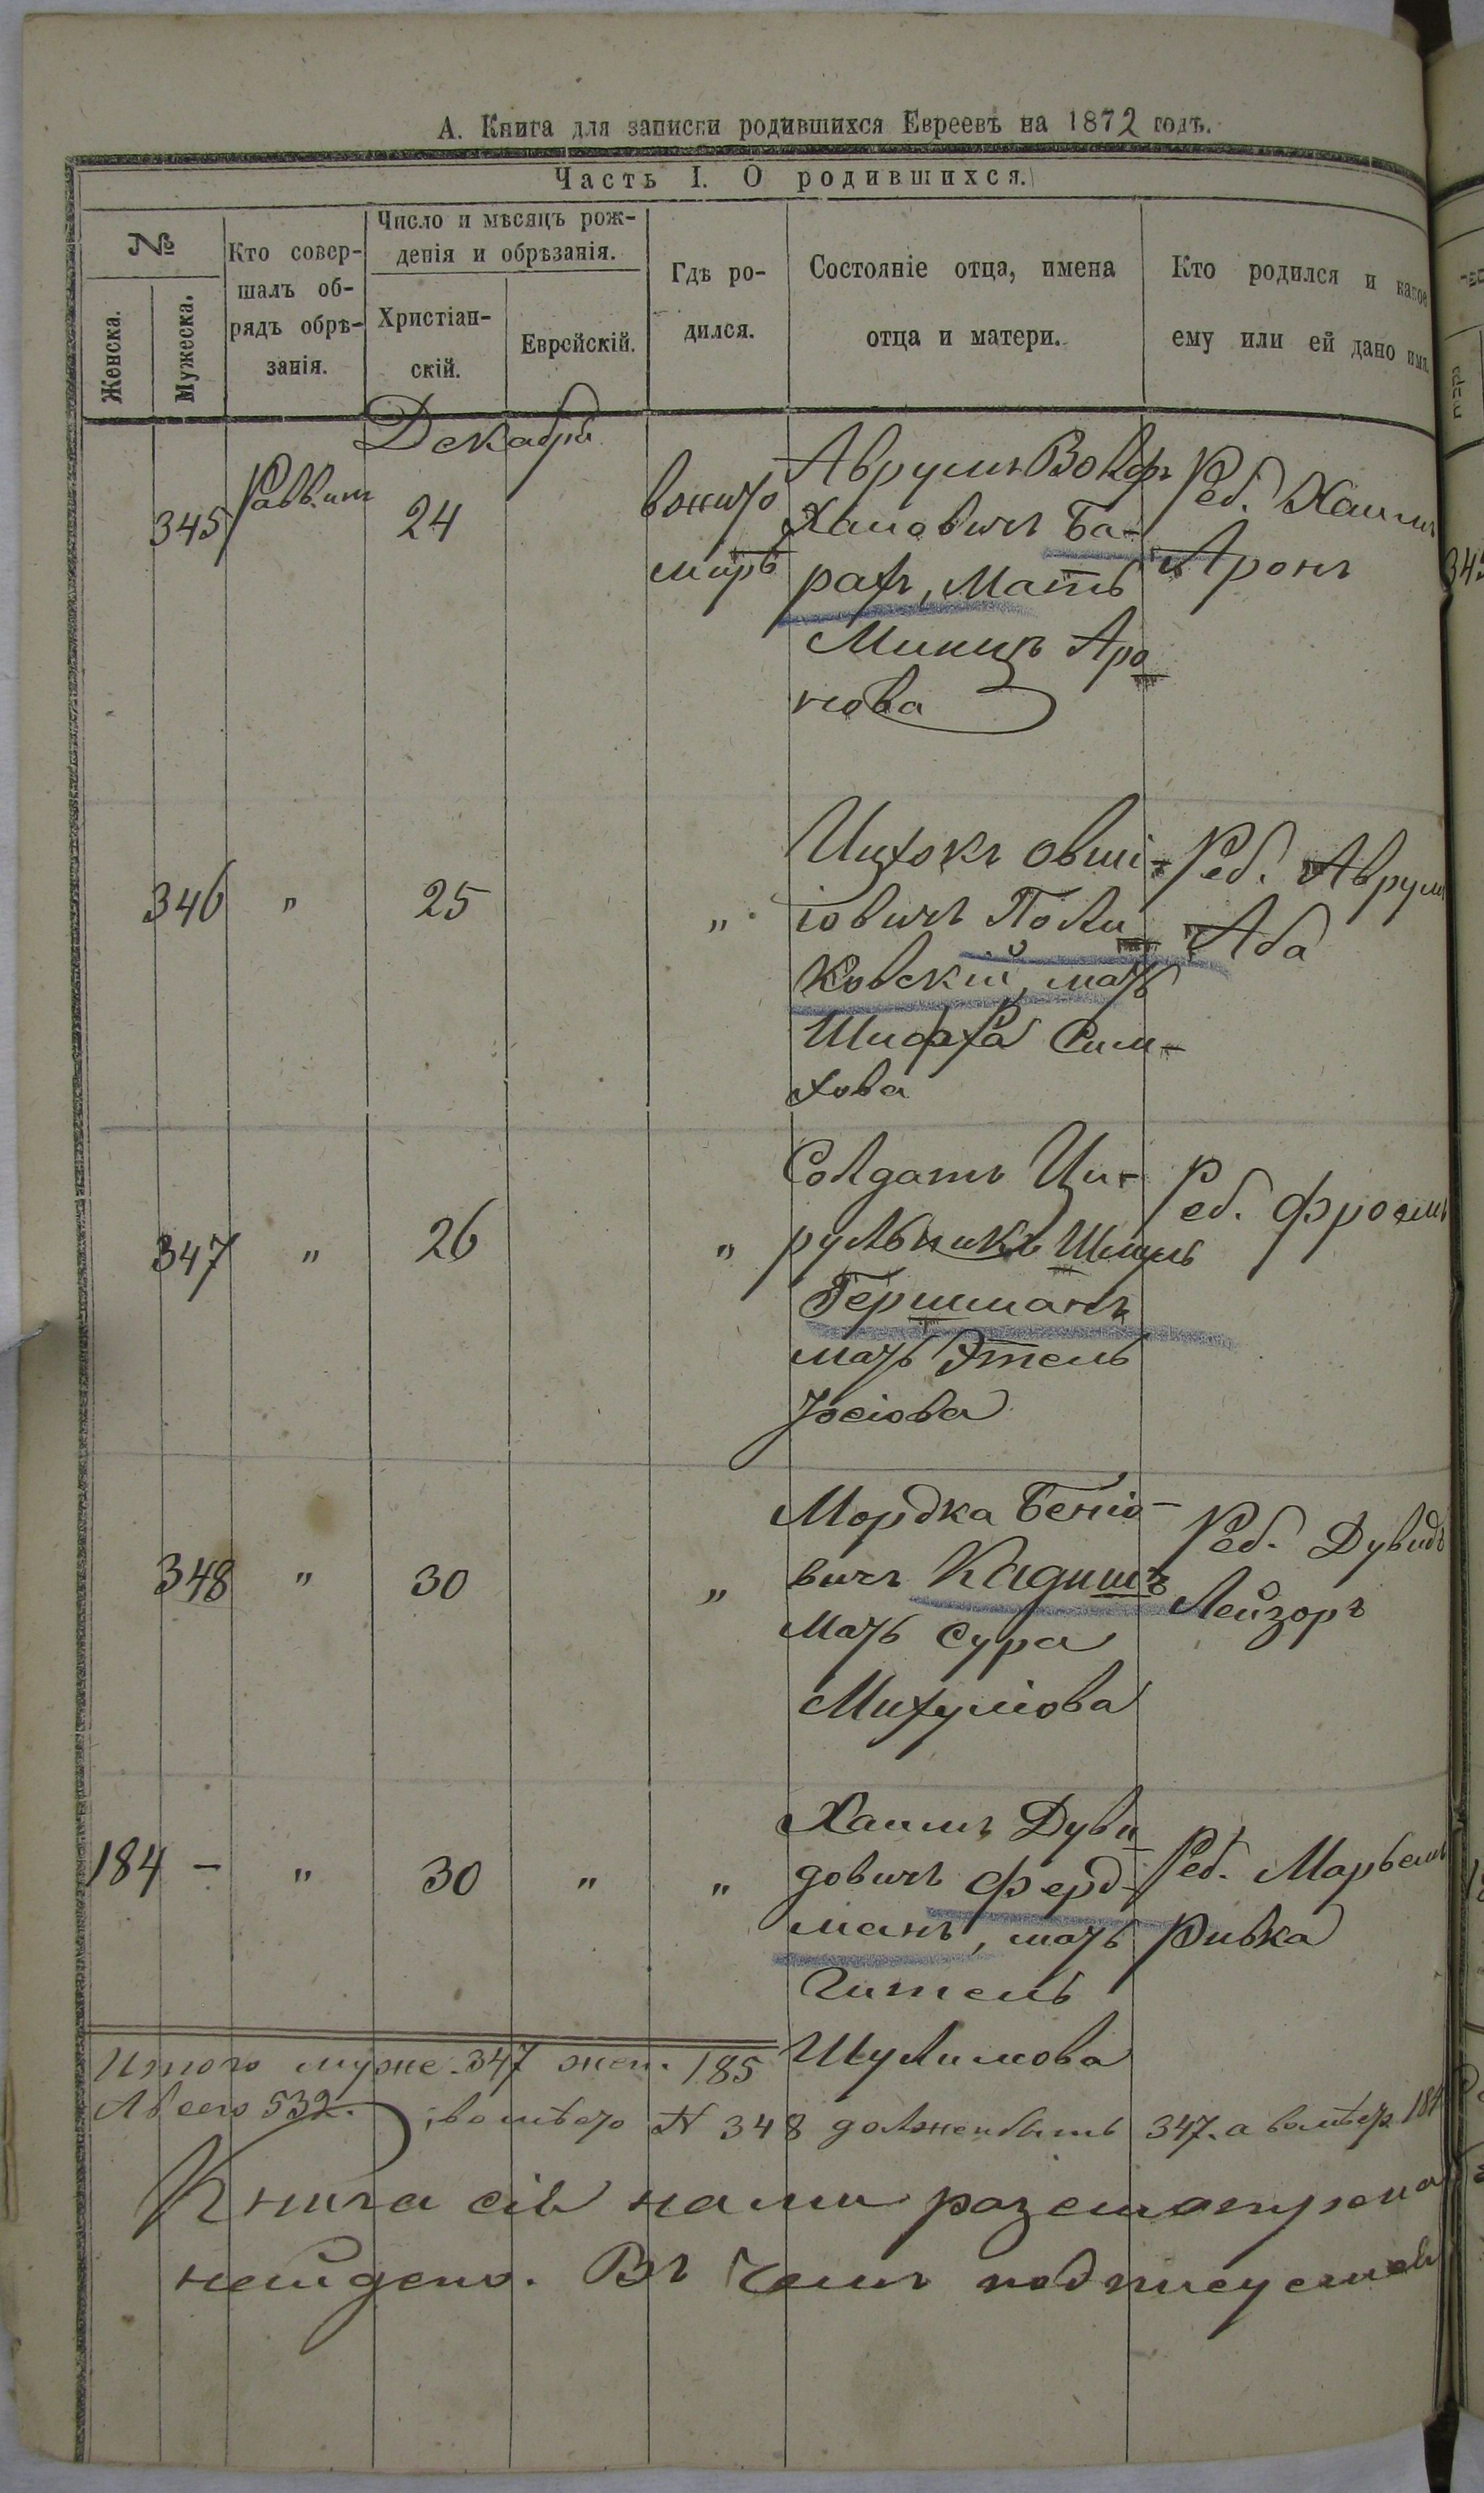 А. Книга для записки родившихся Евреевъ на 1872 годъ.
Часть I. О родившихся.
№
Женска.
Мужеска.
Кто совер-
шалъ об-
рядъ обрѣ-
занія.
Число и мѣсяцъ рож-
денія и обрѣзанія.
Христіан-
скій.
Еврейскій.
Гдѣ ро-
дился.
Состояніе отца, имена
отца и матери.
Кто родился и какое
ему или ей дано имя.
Декабрь
345
Раввин
24
вжито
миръ
Аврумъ Волфъ
Хаимовичъ Ба-
рахъ, Мать
Минцъ Аро
нова
Реб. Хаимъ
Аронъ
346 " 25 "
Ицхокъ Овши-
іовичъ Поли
ковскій, мать
Шифра Сим-
хова
Реб. Аврум
Аба
347 " 26 "
Солдатъ Ци-
рульникъ
Гершманъ
мать Этель
Іосіова
Реб. Фроимъ
348 " 30 "
Мордка Беніо-
вичъ Кадишъ
Мать Сура
Реб. Дувидъ
Лейзоръ
184 - " 30 " "
Хаимъ Дуви
довичъ Ферд-
манъ, мать
Гитель
Шулимова
Реб.
Ривка
Итого муже. 347 жен. 185
А всего 532. вмѣсто N 348 долженбыть 347. а вмѣсто 184
Книга сія нами разсмотрена
найдено. Въ чемъ подписуемся